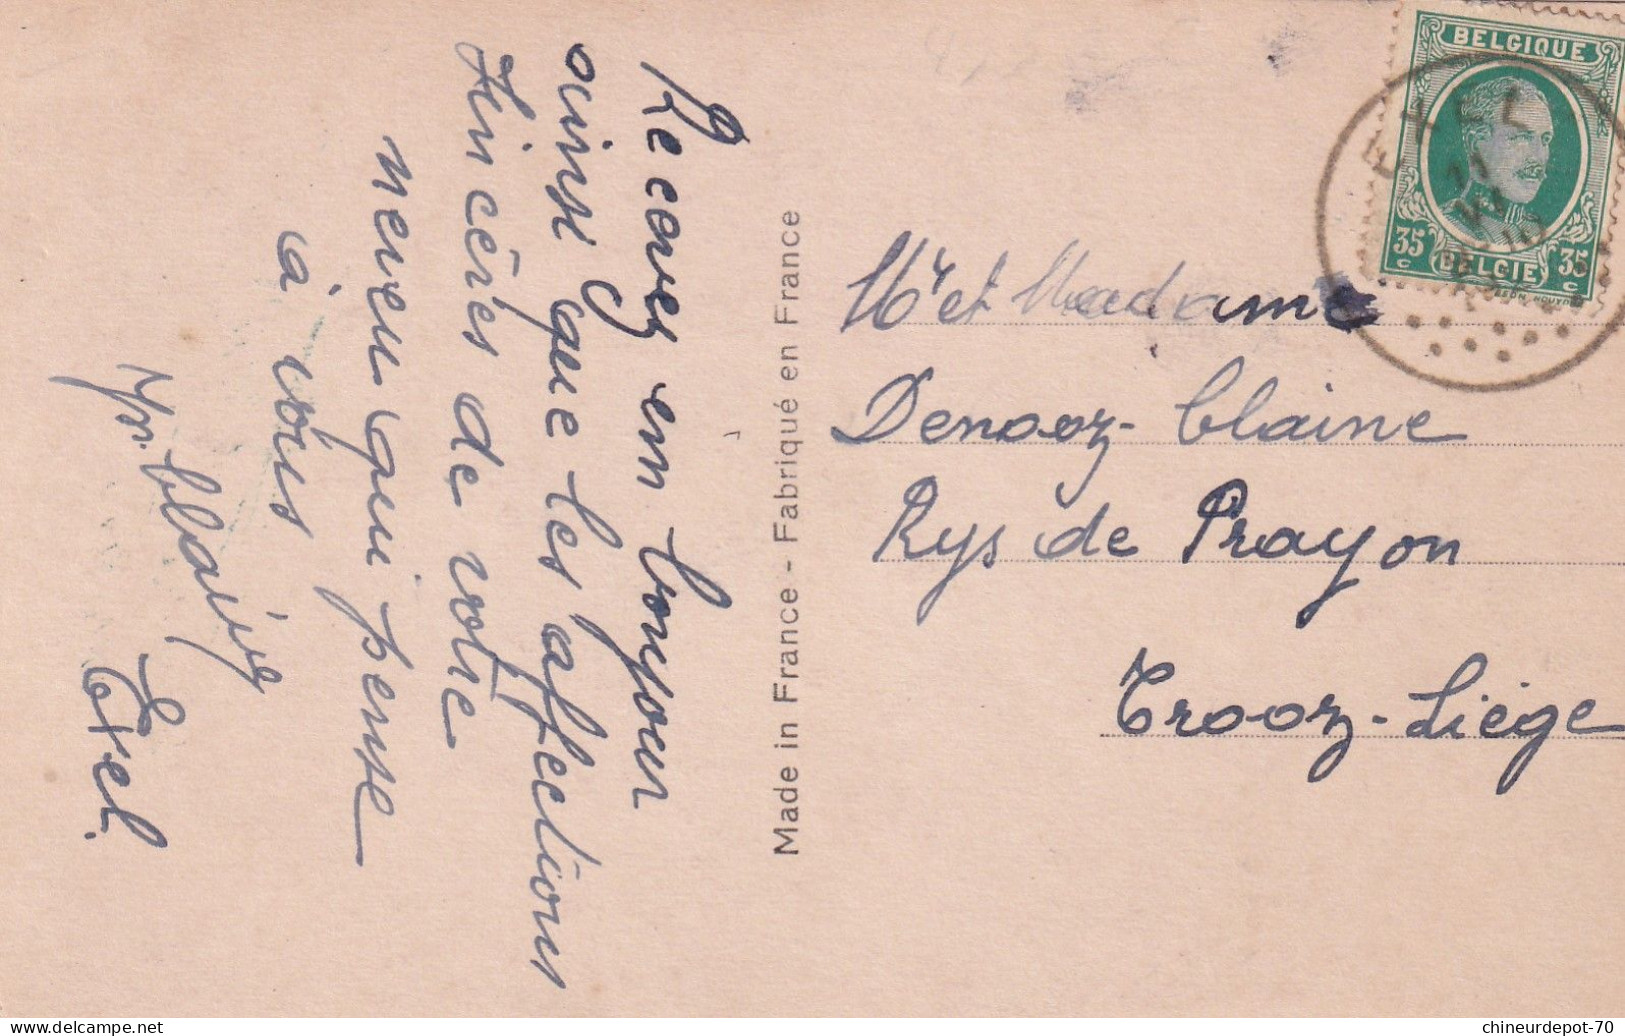 Recevez un bonjour
ainsi que les affections
sincères de votre
neveu qui pense
à vous
Exel.
Made in France - Fabriqué en France
BELGIQUE
35 c
BELGIE
35 c
EXEL
11
Mr et Madame
Denooz-Claine
Rys de Prayon
Trooz-Liège
chineurdepot-70